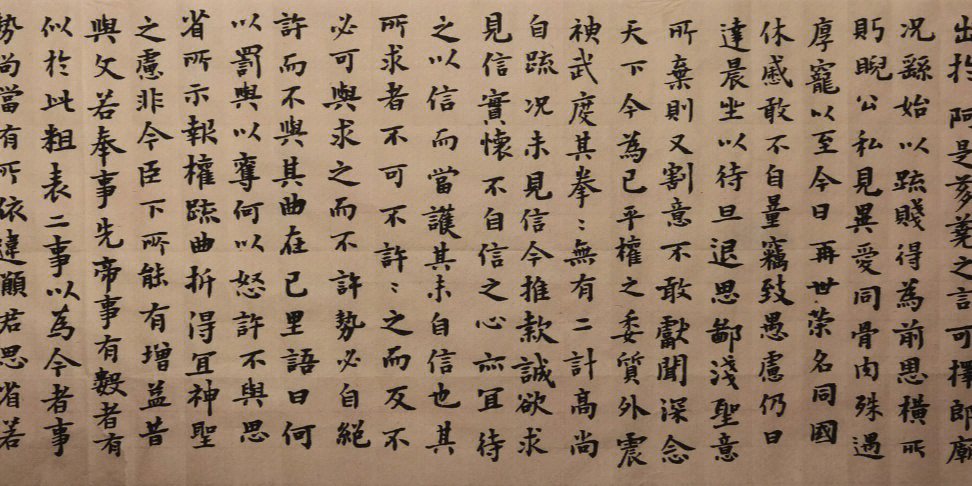 出於阿是芻蕘之言可擇郎廟
况繇始以疏賤得為前思橫所
眄睨公私見異愛同骨肉殊遇
厚寵以至今日再世榮名同國
休慼敢不自量竊致愚慮仍日
達晨坐以待旦退思鄙淺聖意
所棄則又割意不敢獻聞深念
天下今為已平權之委質外震
神武度其拳:無有二計高尚
自疏况未見信今推款誠欲求
見信實懷不自信之心亦宜待
之以信而當護其未自信也其
所求者不可不許:之而反不
必可與求之而不許勢必自絕
許而不與其曲在己里語曰何
以罰與以奪何以怒許不與思
省所示報權疏曲折得宜神聖
之慮非今臣下所能有增益昔
與文若奉事先帝事有數者有
似於此粗表二事以為今者事
勢尚當有所依違願君思省若